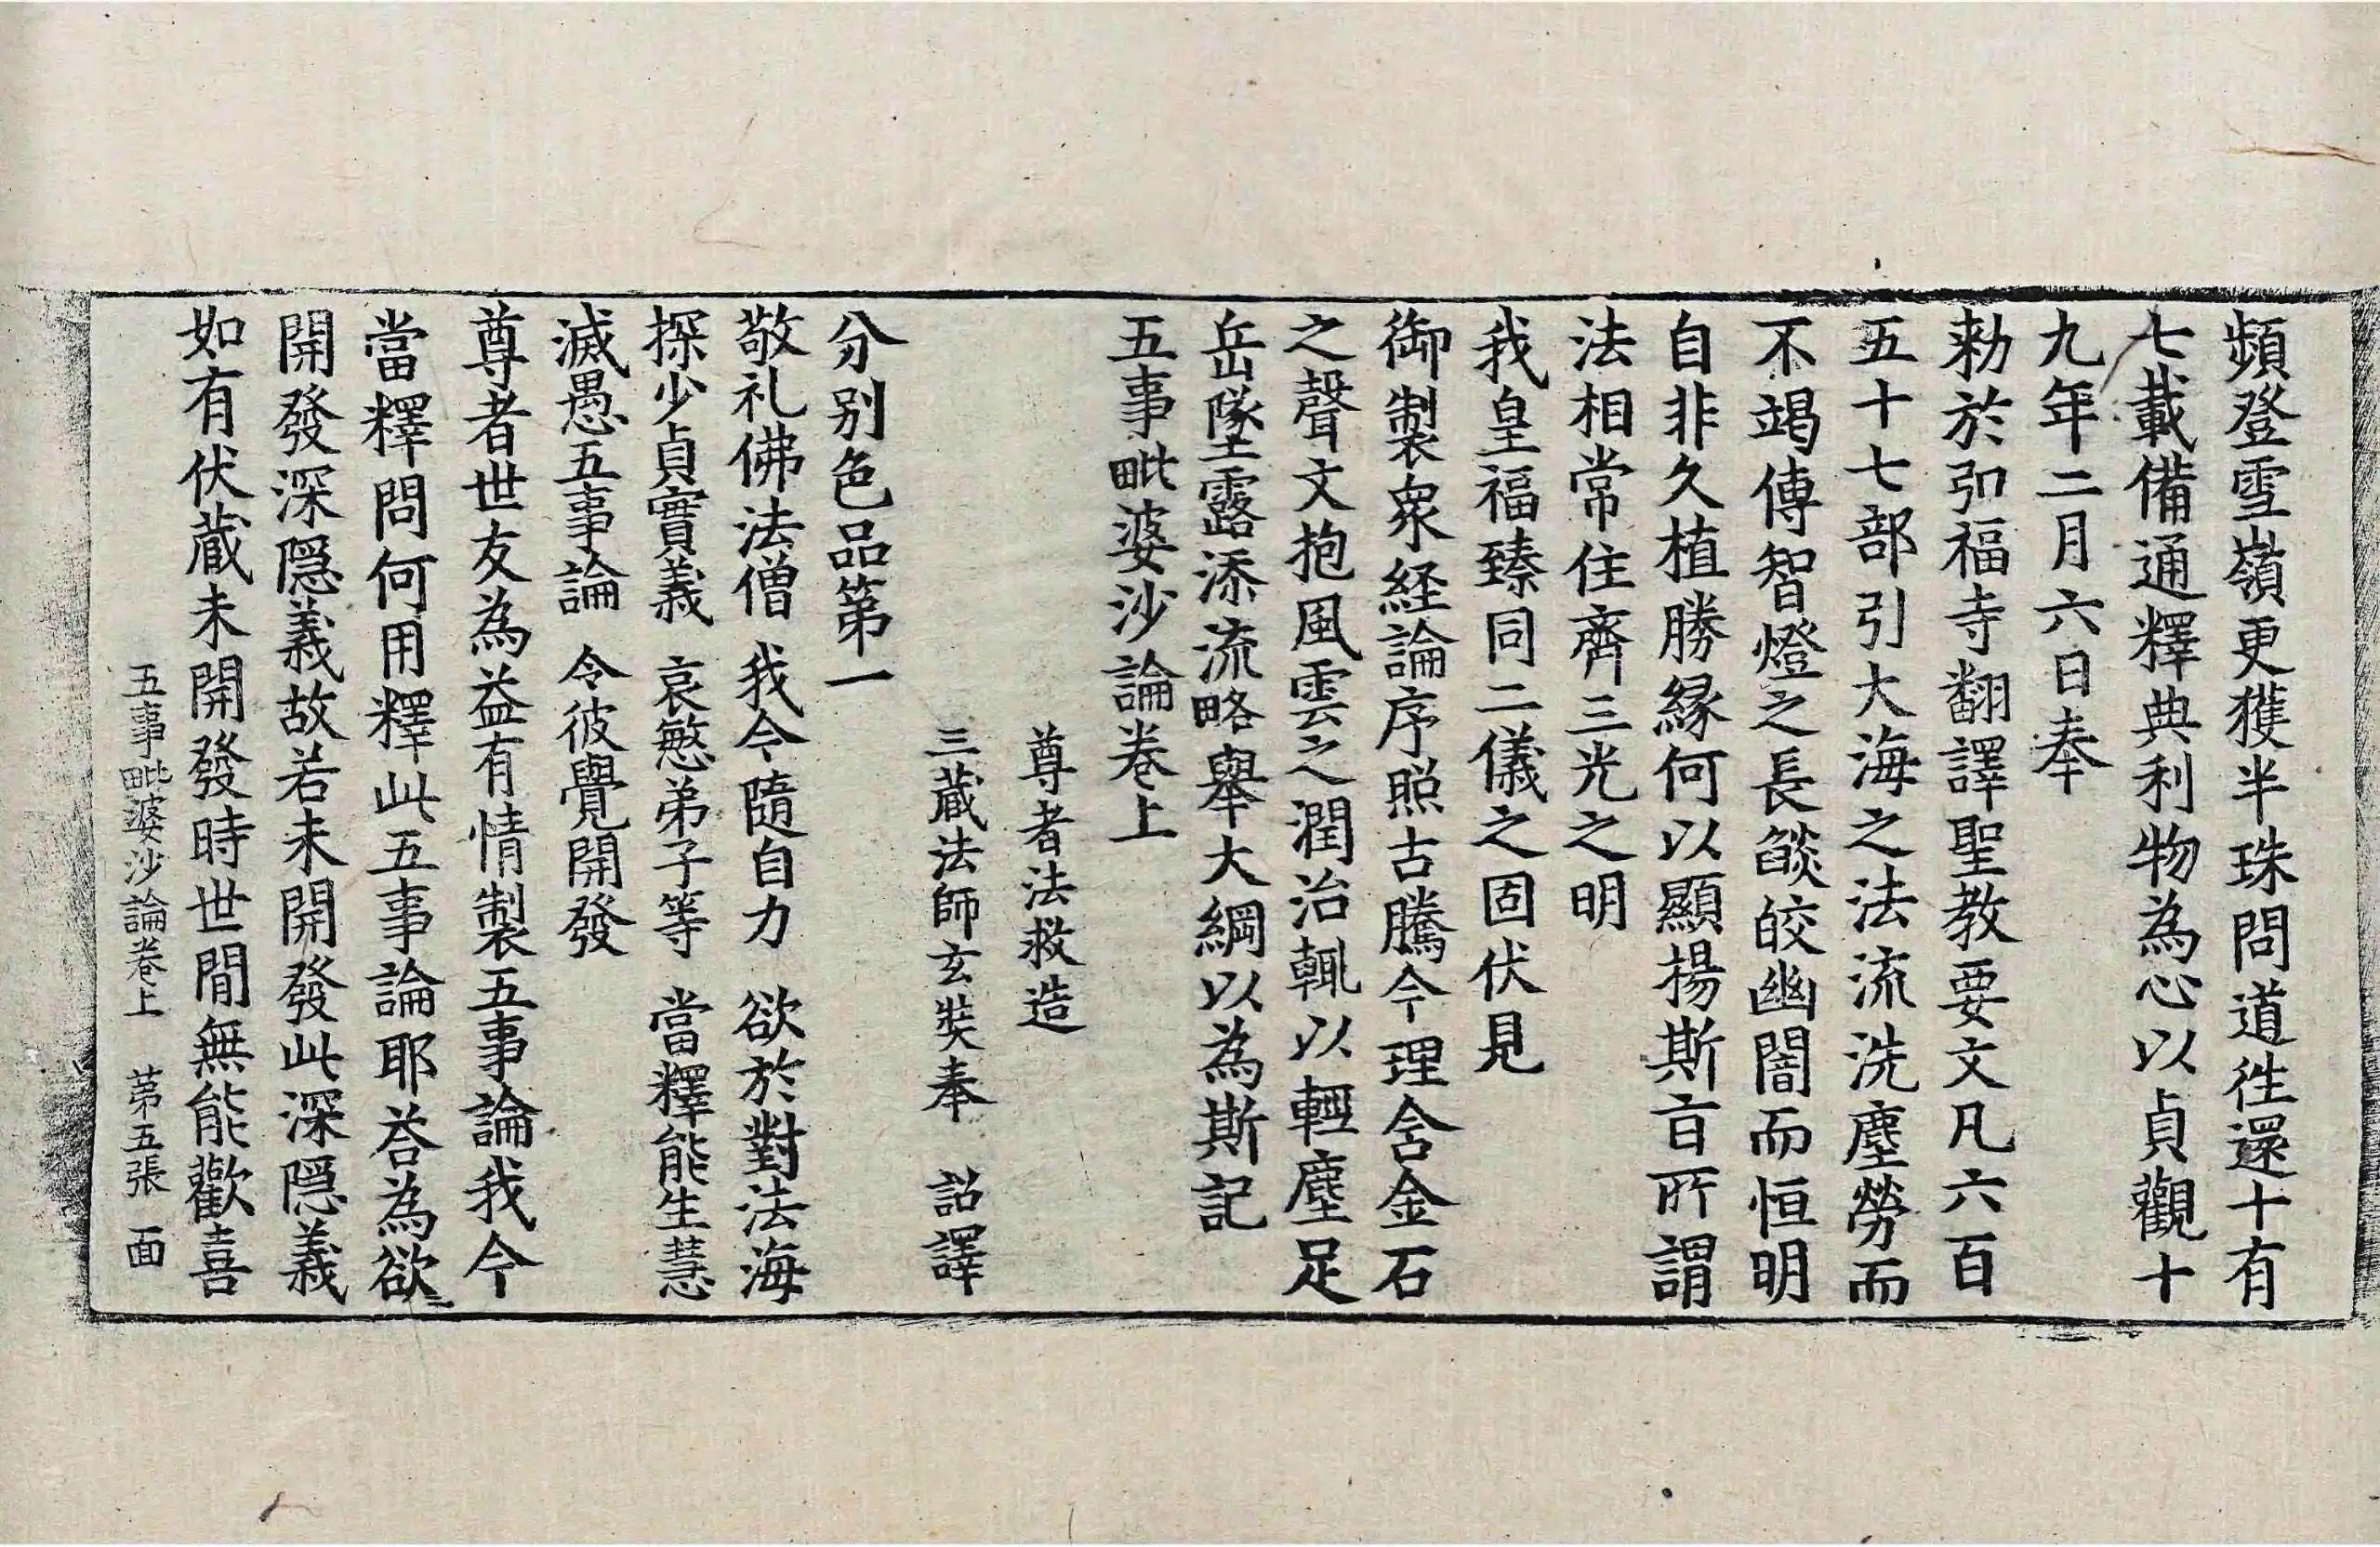 頻登雪嶺更獲半珠問道徃還十有
七載備通釋典利物為心以貞觀十
九年二月六日奉
勑於弘福寺翻譯聖教要文凡六百
五十七部引大海之法流洗塵勞而
不竭傳智燈之長燄皎幽闇而恒明
自非久植勝緣何以顯揚斯旨所謂
法相常住齊三光之明
我皇福臻同二儀之固伏見
御製衆経論序照古騰今理含金石
之聲文抱風雲之潤治輒以輕塵足
岳墜露添流略舉大綱以為斯記
五事毗婆沙論卷上
尊者法救造
三蔵法師玄奘奉　詔譯
分別色品第一
敬礼佛法僧　我今隨自力　欲於對法海
探少貞實義　哀愍弟子等　當釋能生慧
滅愚五事論　令彼覺開發
尊者世友為益有情製五事論我今
當釋問何用釋此五事論耶荅為欲
開發深隱義故若未開發此深隱義
如有伏蔵未開發時世間無能歡喜
五事毗婆沙論卷上　苐五張　面